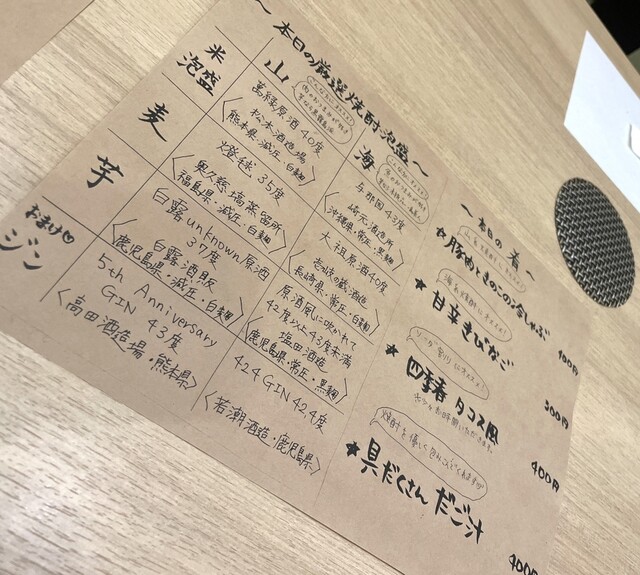 〜本日の厳選焼酎・泡盛〜
山
海
米
泡盛
萬緑原酒40度
松本酒造場
〈熊本県・減圧・白麹〉
与那国43度
崎元酒造所
〈沖縄県・常圧・黒麹〉
麦
燈毬35度
奥久慈蒸留所
〈福島県・減圧・白麹〉
大祖原酒40度
壱岐の蔵酒造
〈長崎県・常圧・白麹〉
芋
白露unknown原酒
37度
白露酒販
〈鹿児島県・減圧・白麹〉
原酒風に吹かれて
42度以上43度未満
塩田酒造
〈鹿児島県・常圧・黒麹〉
おまけ
ジン
5th Anniversary
GIN 43度
〈高田酒造場・熊本県〉
424GIN 42.4度
〈若潮酒造・鹿児島県〉
〜本日の肴〜
400円
★甘辛きびなご
300円
★四季香タコス風
400円
★具だくさんだご汁
400円